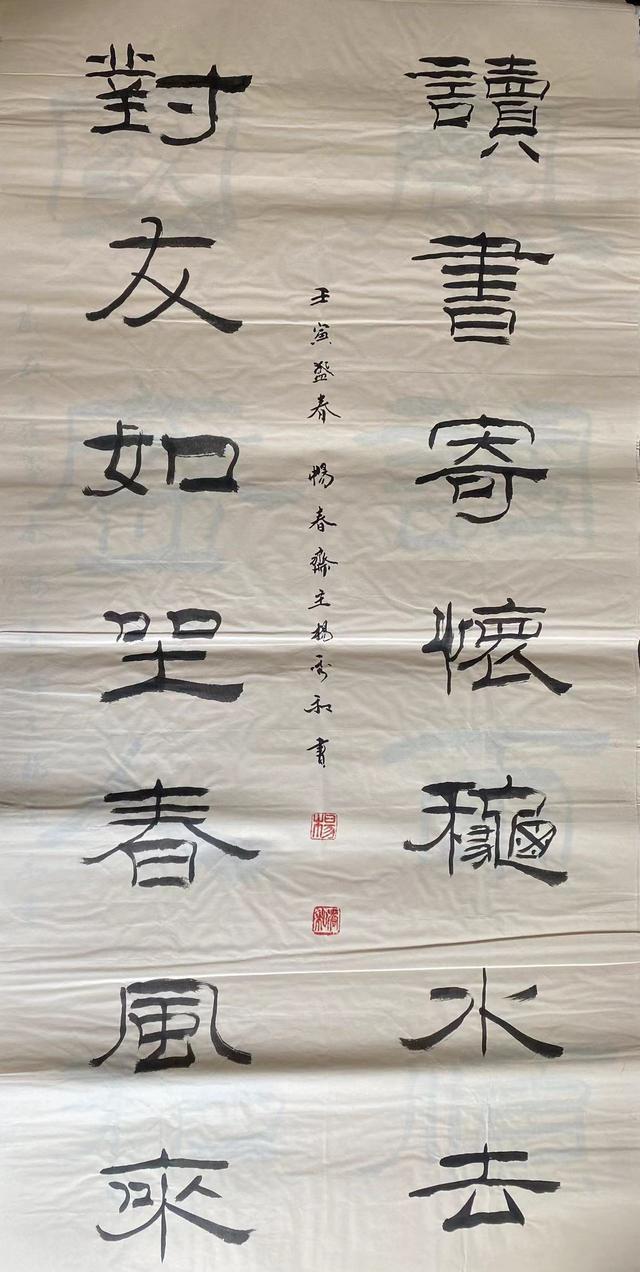 讀書寄懷龝水去
壬寅春 暢春齋主楊和書
楊
對友如坐春風來